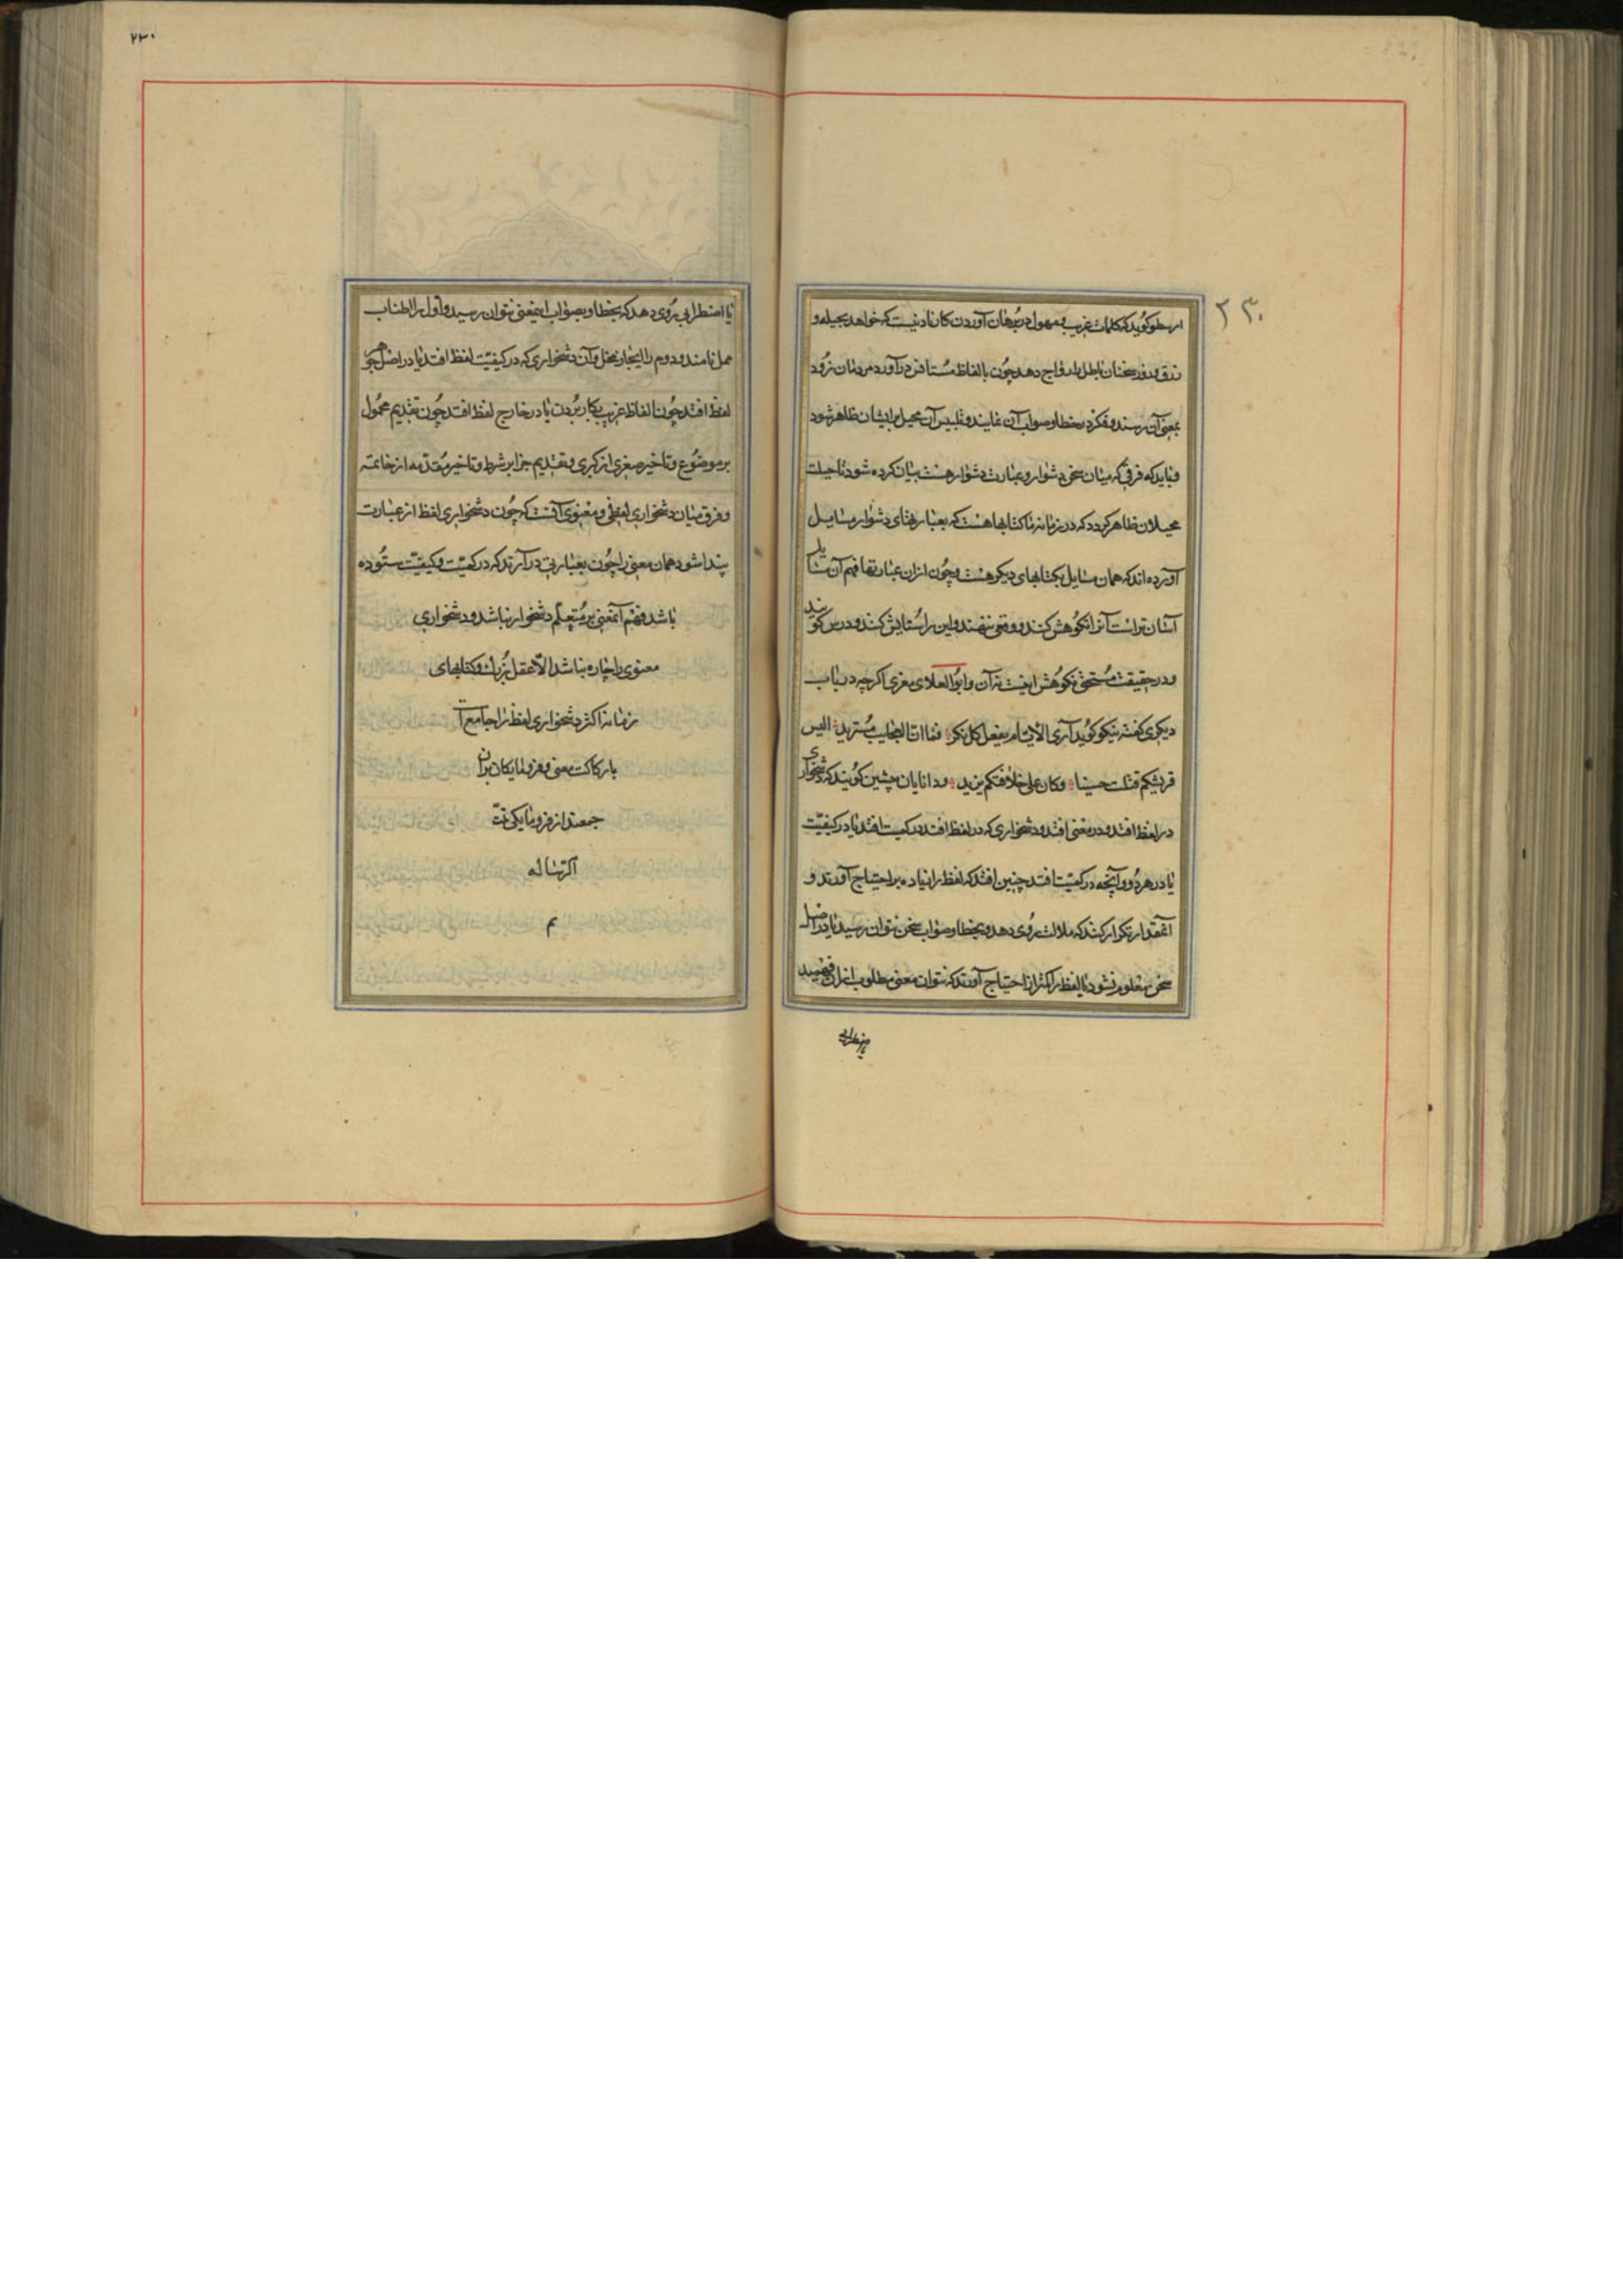 ۲۳۰
ارسطو گوید که کلمات غریب و مهول در برهان آوردن کار نادنیست که خواهد بحیله و
زرق و زور سخنان باطل را رواج دهد چون بالفاظ مستانف درآورد مردمان زود
بمعنی آن نرسند و فکر در خطا و صواب آن ننمایند و تلبیس آن محیل بر ایشان ظاهر نشود
و باید که فرقی که میان سخن دشوار و عبارت دشوار هست بیان کرده شود تا حیلت
محیلان ظاهر گردد که در زمانه ما کتابها هست که بعبارتهای دشوار مسایل
آورده‌اند که همان مسایل بکتابهای دیگر هست و چون ازان عبارتها فهم آن مسایل
آسان تر است آنرا نکوهش کنند و وقعی ننهند و این را ستایش کنند و درس گویند
و در حقیقت مستحق نکوهش اینست نه آن و ابو العلای معری اگرچه در باب
دیگری گفته نیکو گوید آری الایام یفعل کل نکر فما انا فی العجایب مستزید الیس
قریشکم قتلت حسینا وکان علی خلافتکم یزید و دانایان پیشین گویند که دشخواری
در لفظ افتد و در معنی افتد و دشخواری که در لفظ افتد در کمیت افتد یا در کیفیت
یا در هر دو و آنچه در کمیت افتد چنین افتد که لفظ را زیاده بر احتیاج آورند و
آنمقدار تکرار کنند که ملالت روی دهد و بخطا و صواب سخن نتوان رسید یا در اصل
سخن معلوم نشود یا لفظ را کمتر از احتیاج آورند که نتوان معنی مطلوب ازان فهمید
۲۳۰
یا اضطرابی روی دهد که بخطا و بصواب آنمعنی نتوان رسید و اول را اطناب
ممل نامند و دوم را ایجاز مخل و آن دشخواری که در کیفیت لفظ افتد یا در اصل جوهر
لفظ افتد چون الفاظ غریب بکار بردن یا در خارج لفظ افتد چون تقدیم محمول
بر موضوع و تاخیر صغری از کبری و تقدیم جزا بر شرط و تاخیر مقدمه از خاتمه
و فرق میان دشخواری لفظی و معنوی آنست که چون دشخواری لفظ از عبارت
پیدا شود همان معنی را چون بعبارتی در آرند که در کمیت و کیفیت ستوده
باشد فهم آنمعنی بر متعلم دشخوار نباشد و دشخواری
معنوی را چاره نباشد الا عقل بزرک و کتابهای
زمانه اکثر دشخواری لفظ را جامع است
با رکاکت معنی و فرومایکان بران
جمعند از فرومایکی تمت
الرساله
م